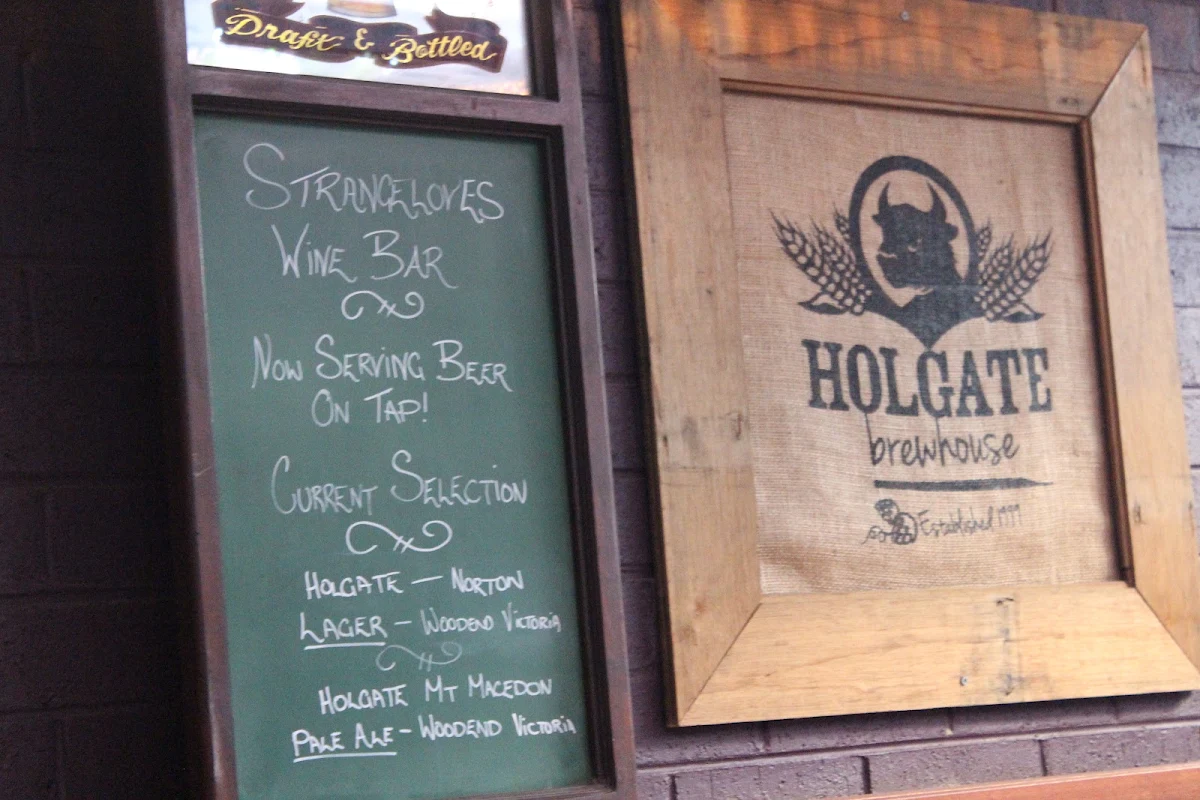 Draft & Bottled
STRANGELOVES
WINE BAR
NOW SERVING BEER
ON TAP!
CURRENT SELECTION
HOLGATE — NORTON
LAGER – WOODEND VICTORIA
HOLGATE MT MACEDON
PALE ALE – WOODEND VICTORIA
HOLGATE
brewhouse
Established 1999